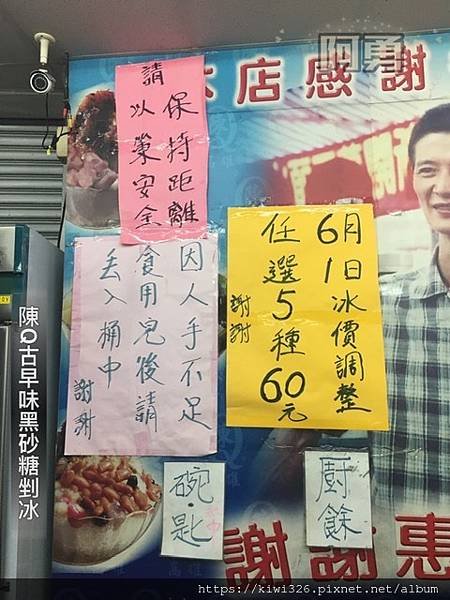 阿勇
本店感謝
請保持距離
以策安全
6月1日冰價調整
任選5種60元
謝謝
因人手不足
食用完後請
丟入桶中
謝謝
陳Q古早味黑砂糖剉冰
碗.匙
廚餘
謝謝惠
https://kiwi326.pixnet.net/album